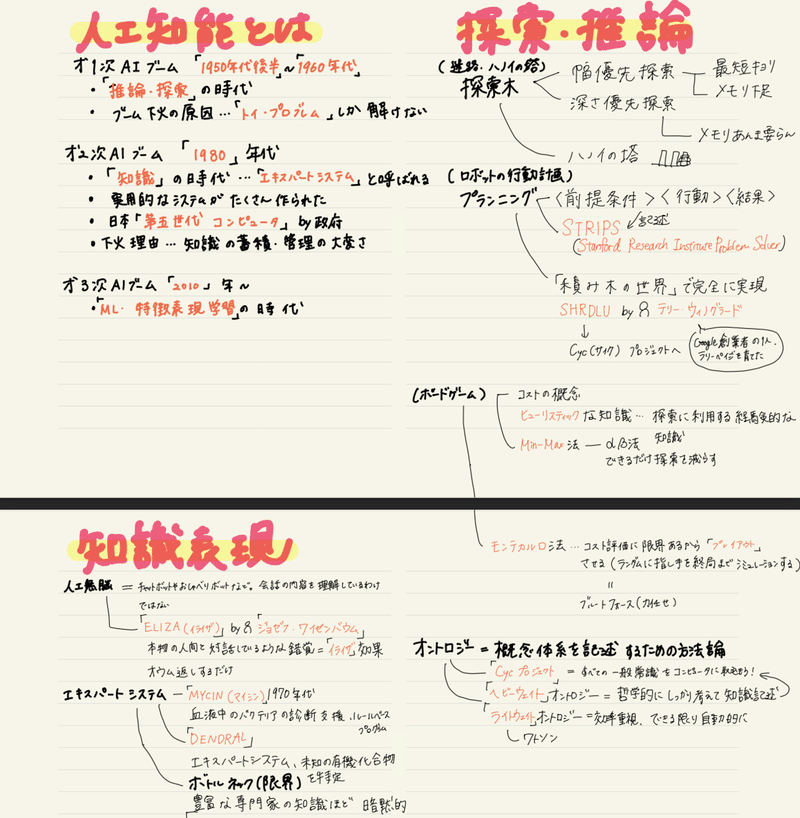 人工知能とは
オ1次AIブーム 「1950年代後半」~「1960年代」
・「推論・探索」の時代
・ブーム下火の原因…「トイ・プロブレム」しか解けない
オ2次AIブーム 「1980」年代
・「知識」の時代…「エキスパートシステム」と呼ばれる
・実用的なシステムがたくさん作られた
・日本「第五世代コンピュータ」by政府
・下火理由…知識の蓄積・管理の大変さ
オ3次AIブーム「2010」年〜
・「ML・特徴表現学習」の時代
探索・推論
(迷路・ハノイの塔)
探索木
幅優先探索
最短キョリ
メモリ不足
深さ優先探索
メモリあんま要らん
ハノイの塔
(ロボットの行動計画)
プランニング
〈前提条件〉〈行動〉〈結果〉
STRIPS
記述
(Stanford Research Institute Problem Solver)
「積み木の世界」で完全に実現
SHRDLU by テリー・ウィノグラード
↓
Cyc(サイク)プロジェクトへ
Google創業者の1人、
ラリーペイジを育てた
(ボードゲーム)
コストの概念
ヒューリスティックな知識…探索に利用する経験的な
知識
Min-Max法 — αβ法
できるだけ探索を減らす
モンテカルロ法…コスト評価に限界あるから「プレイアウト」
させる(ランダムに指し手を終局までシミュレーションする)
=
ブルートフォース(力任せ)
知識表現
人工無脳 = チャットボットやおしゃべりボットなど。会話の内容を理解しているわけ
ではない
「ELIZA(イライザ)」by「ジョセフ・ワイゼンバウム」
本物の人間と対話しているような錯覚=「イライザ」効果
オウム返しするだけ
エキスパートシステム — 「MYCIN(マイシン)」1970年代
血液中のバクテリアの診断支援、ルールベース
プログラム
「DENDRAL」
エキスパートシステム、未知の有機化合物
を特定
ボトルネック(限界)
豊富な専門家の知識ほど暗黙的
オントロジー = 概念体系を記述するための方法論
「Cycプロジェクト」=すべての一般常識をコンピュータに取込もう!
「ヘビーウェイト」オントロジー=哲学的にしっかり考えて知識記述
「ライトウェイト」オントロジー=効率重視、できる限り自動的に
ワトソン